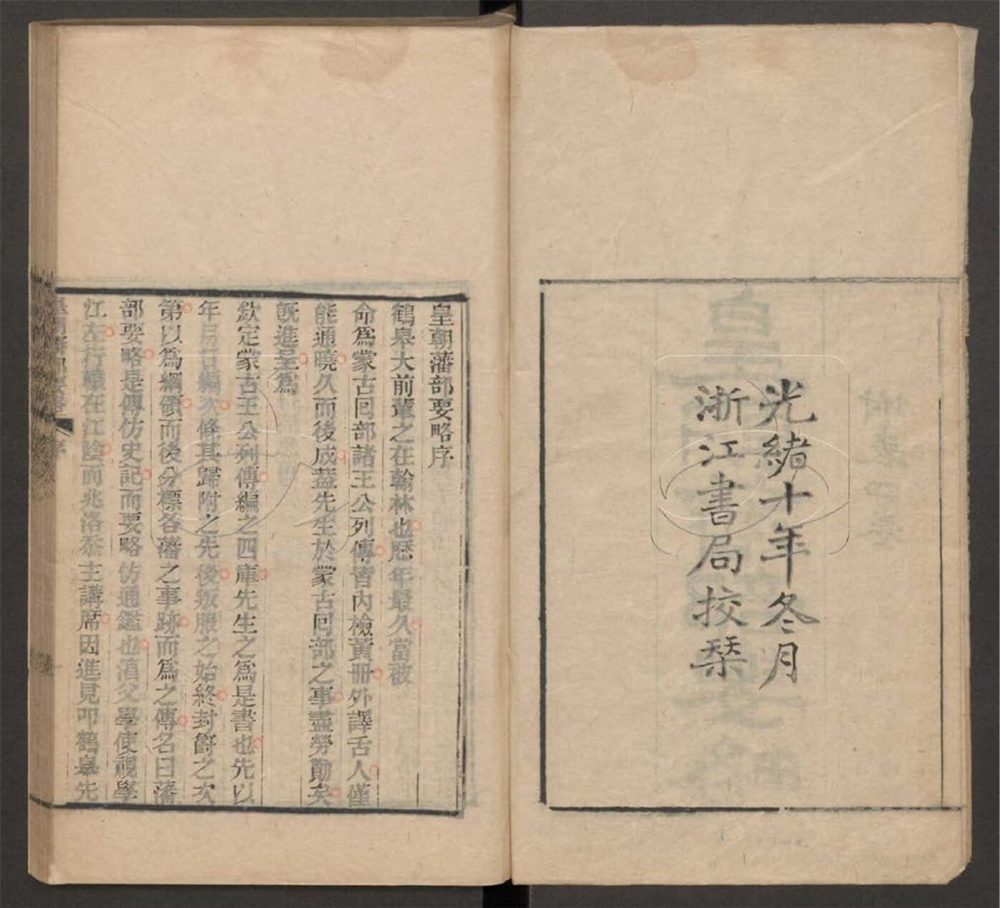 光緒十年冬月
浙江書局挍栞
皇朝藩部要略序
鶴皋大前輩之在翰林也歷年最久當被
命爲蒙古回部諸王公列傳皆內檢黃冊外譯舌人僅
能通曉久而後成蓋先生於蒙古回部之事蓋勞勩矣
旣進呈爲
欽定蒙古王公列傳編之四庫先生之爲是書也先以
年月日編次條其歸附之先後叛服之始終封爵之次
第以爲綱領而後分標各藩之事跡而爲之傳名曰藩
部要略是傳仿史記而要略仿通鑑也滇父學使視學
江左行轅在江陰而兆洛忝主講席因進見叩鶴皋先